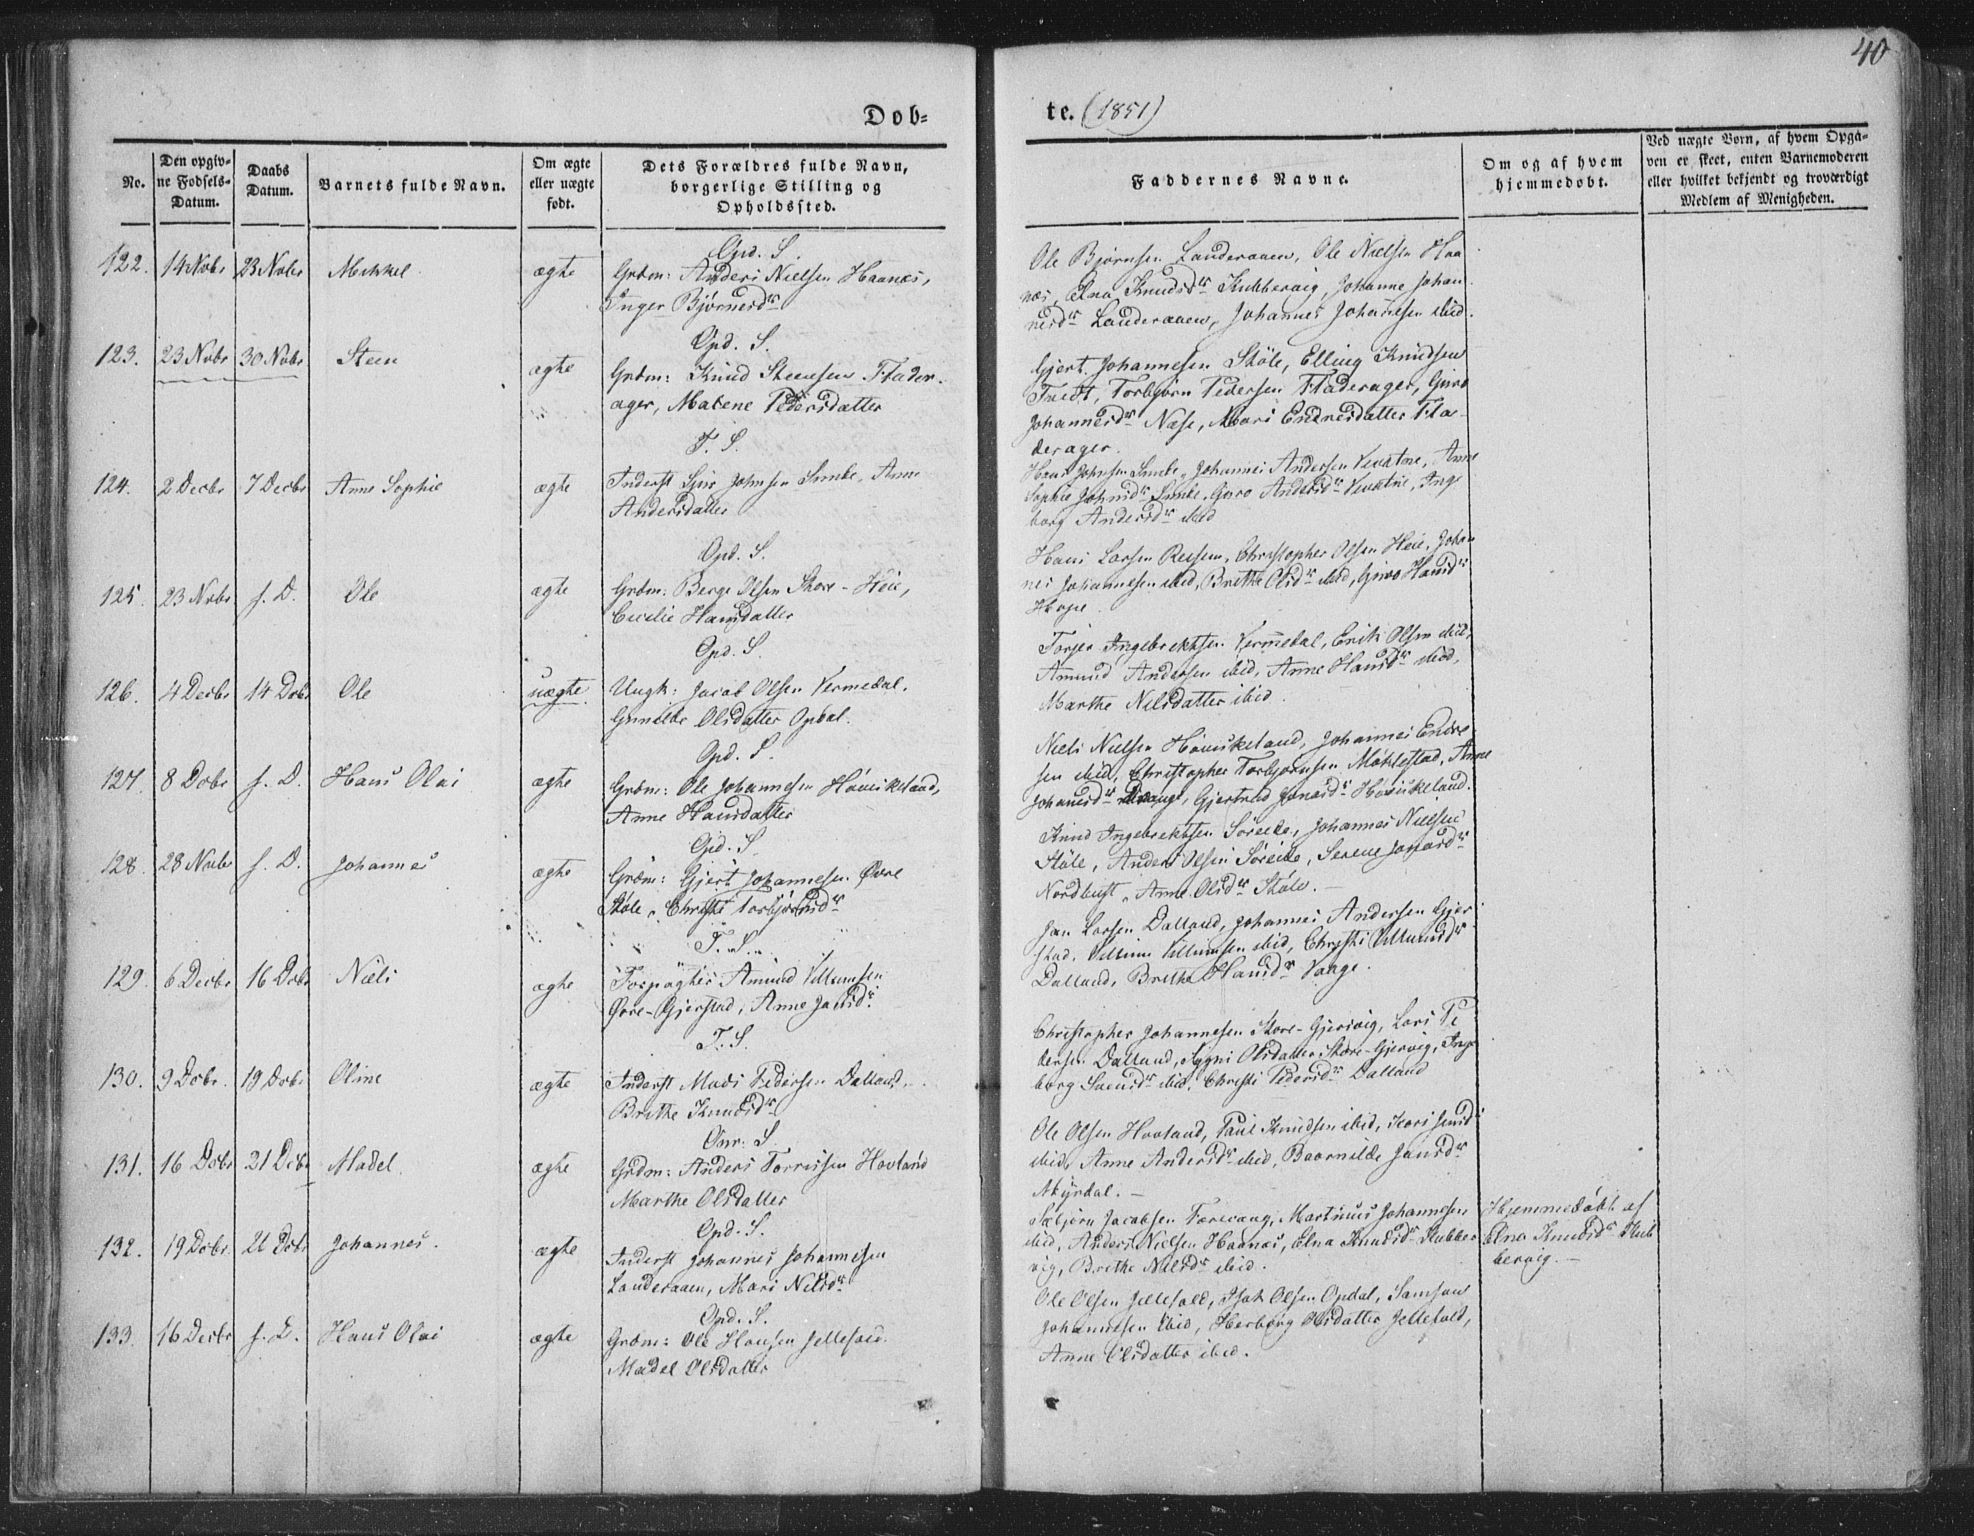 40
Dob=
te. (1851)
No.
Den opgiv-
ne Fodsels-
Datum.
Daabs
Datum.
Barnets fulde Navn.
Om ægte
eller uægte
født.
Dets Forældres fulde Navn,
borgerlige Stilling og
Opholdssted.
Faddernes Navne.
Om og af hvem
hjemmedobt.
Ved uægte Born, af hvem Opga-
ven er skeet, enten Barnemoderen
eller hvilket bekjendt og troværdigt
Medlem af Menigheden.
122. 14 Nobr 23 Nobr Mikkel ægte
Opd. S.
Grdm: Anders Nielsen Haanæs,
Inger Bjørnsdr
Ole Bjørnsen Landeraaen, Ole Nielsen Haa
næs, Elna Knudsdr Kubbervig, Johanne Johan
nesdr Landeraaen, Johannes Johannesen ibid.
123. 23 Nobr 30 Nobr Steen ægte
Opd. S.
Grdm: Knud Steensen Flader-
ager, Malene Pedersdatter
Gjert Johannesen Støle, Elling Knudsen
Tveit, Torbjørn Pedersen Fladerager, Guro
Johannesdr Næse, Mari Endresdatter Fla-
derager.
124. 2 Decbr 7 Decbr Anne Sophie ægte
T. S.
Inderst Johnsen Anne
Andersdatter
Johnsen Johannes Andersen Anne
Sophie Johnsdr Guro Andersdr Inge
borg Andersdr ibid
125. 23 Nobr s. D. Ole ægte
Opd. S.
Grdm: Berge Olsen Store-Høie,
Cecilie Hansdatter
Hans Larsen Christopher Olsen Høie, Johan
nes Johannesen ibid, Brithe Olsdr ibid, Guro Hansdr
Hope.
126. 4 Decbr 14 Dcbr Ole uægte.
Opd. S.
Ungk: Jacob Olsen Vermedal.
Gunilde Olsdatter Opdal.
Torger Ingebrektsen Vermedal, Erik Olsen ibid,
Amund Andersen ibid, Anne Hansdr ibid,
Marthe Nilsdatter ibid.
127. 8 Dcbr s. D. Hans Olai ægte
Opd. S.
Grdm: Ole Johannesen Haviskeland,
Anne Hansdatter
Niels Nielsen Haviskeland, Johannes Endre
sen ibid, Christopher Torbjørnsen Møklestad, Anne
Johansdr Drange, Gjertrud Jonasdr Haviskeland.
128. 28 Nobr s. D. Johannes ægte
Opd. S.
Grdm: Gjert Johannesen Øvre
Støle, Christi Torbjørnsdr
Knud Ingebrektsen Søreide, Johannes Nielsen
Støle, Anders Olsen Søreide, Serene
Nordhust, Anne Olsdr Støle. –
129. 6 Decbr 16 Dcbr Niels ægte
T. S.
Forpagter Amund Villumsen
Øvre-Gjerstad, Anne Jansdr
Jan Larsen Dalland, Johannes Andersen Gjer
stad, Villum Villumsen ibid, Christi Villumsdr
Dalland, Brithe Hansdr Vaage.
130. 9 Dcbr. 19 Dcbr Oline ægte
T. S.
Inderst Mads Pedersen Dalland,
Brithe Knudsdr
Christopher Johannesen Store-Gjervig, Lars Pe
dersen Dalland, Sygni Olsdatter Store-Gjervig, Inge
borg Svensdr ibid, Christi Pedersdr Dalland
131. 16 Dcbr 21 Dcbr Madel. ægte
Onr. S.
Grdm: Anders Torrissen Hovland
Marthe Olsdatter
Ole Olsen Hovland, Paul Knudsen ibid,
ibid, Anne Andersdr ibid, Baarnilde Jansdr
Myrdal. –
132. 19 Dcbr 26 Dcbr Johannes. ægte
Opd. S.
Inderst Johannes Johannesen
Landeraaen, Mari Nilsdr
Asbjørn Jacobsen Færevaag, Martinus Johannesen
ibid, Anders Nielsen Haanæs, Elna Knudsdr Kubber
vig, Brithe Nilsdr ibid.
Hjemmedøbt af
Elna Knudsdr Kub
bervig. –
133. 16 Decbr s. D. Hans Olai ægte
Opd. S.
Grdm: Ole Hansen Jellefald.
Madel Olsdatter
Ole Olsen Jellefald, Isak Olsen Opdal, Samson
Johannesen ibid, Herborg Olsdatter Jellefald,
Anne Olsdatter ibid.